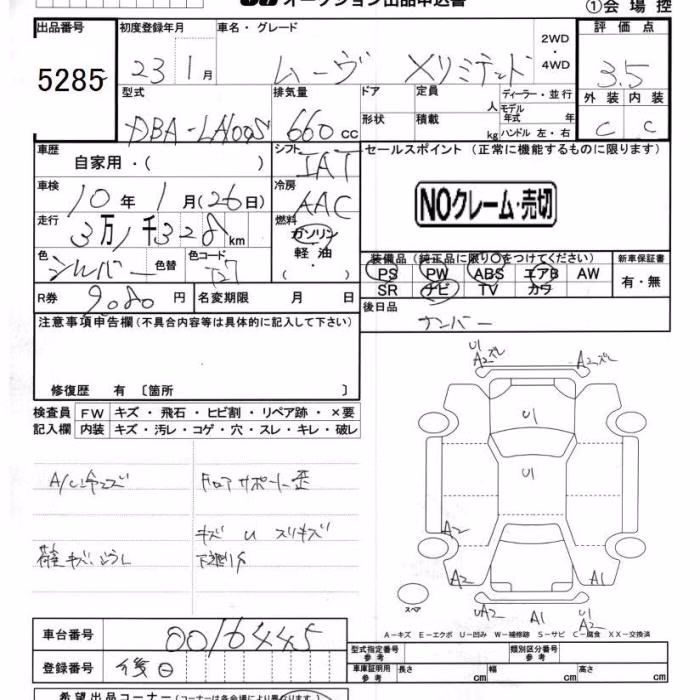 オークション出品申込書
①会場控
出品番号 初度登録年月 車名・グレード 2WD・4WD 評価点
5285 23 1月 ムーヴ Xリミテッド 3.5
型式 排気量 ドア 定員 人 ディーラー・並行 外装 内装
DBA-LA100S 660cc 形状 積載 kg モデル年式 年 C C
ハンドル 左・右
車歴 自家用・( ) シフト IAT セールスポイント (正常に機能するものに限ります)
車検 10年1月(26日) 冷房 AAC NOクレーム・売切
走行 3万1千328km 燃料 ガソリン
軽油
( ・ )
色 シルバー 色替 色コード 装備品(純正品に限り○をつけてください) 新車保証書
PS PW ABS エアB AW 有・無
SR ナビ TV カワ
R券 9080円 名変期限 月 日 後日品
ナンバー
注意事項申告欄(不具合内容等は具体的に記入して下さい)
修復歴 有 〔箇所 〕
検査員 FW キズ・飛石・ヒビ割・リペア跡・×要
記入欄 内装 キズ・汚レ・コゲ・穴・スレ・キレ・破レ
U1 A2ズレ A2ズレ
U1
U1
A/C フロアサポート歪
キズ U スリキズ
A2
A2 A1
スペア
UA2 A1 U1 A2
A-キズ E-エクボ U-凹み W-補修跡 S-サビ C-腐食 XX-交換済
車台番号 0016445
登録番号 後日
型式指定番号 参考 類別区分番号 参考
車庫証明用 参考 長さ cm 幅 cm 高さ cm
希望出品コーナー(コーナーは各会場により異なります)